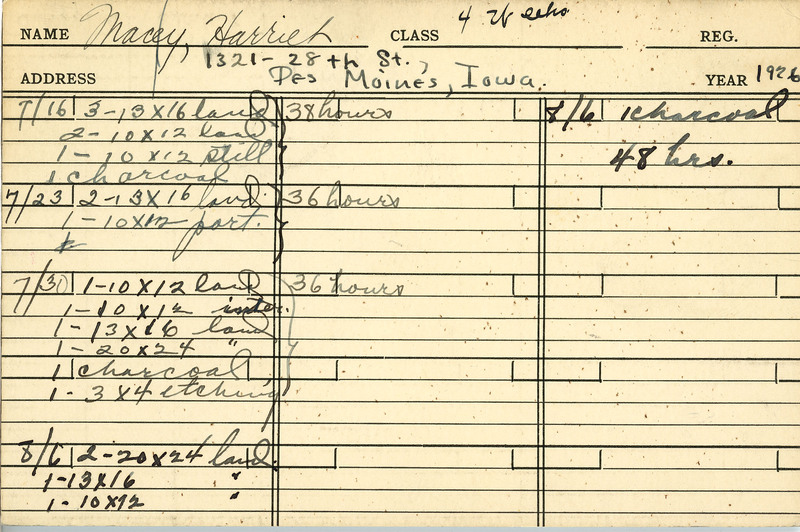 NAME Macey, Harriet CLASS 4 weeks REG.
1321-28th St.,
ADDRESS Des Moines, Iowa. YEAR 1926
7/16 3-13x16 land 38 hours 8/6 1 charcoal
2-10x12 land 48 hrs.
1-10x12 still
1 charcoal
7/23 2-13x16 land 36 hours
1-10x12 port.
7/30 1-10x12 land 36 hours
1-10x12 inter.
1-13x16 land
1-20x24 "
1 charcoal
1-3x4 etching
8/6 2-20x24 land.
1-13x16 "
1-10x12 "